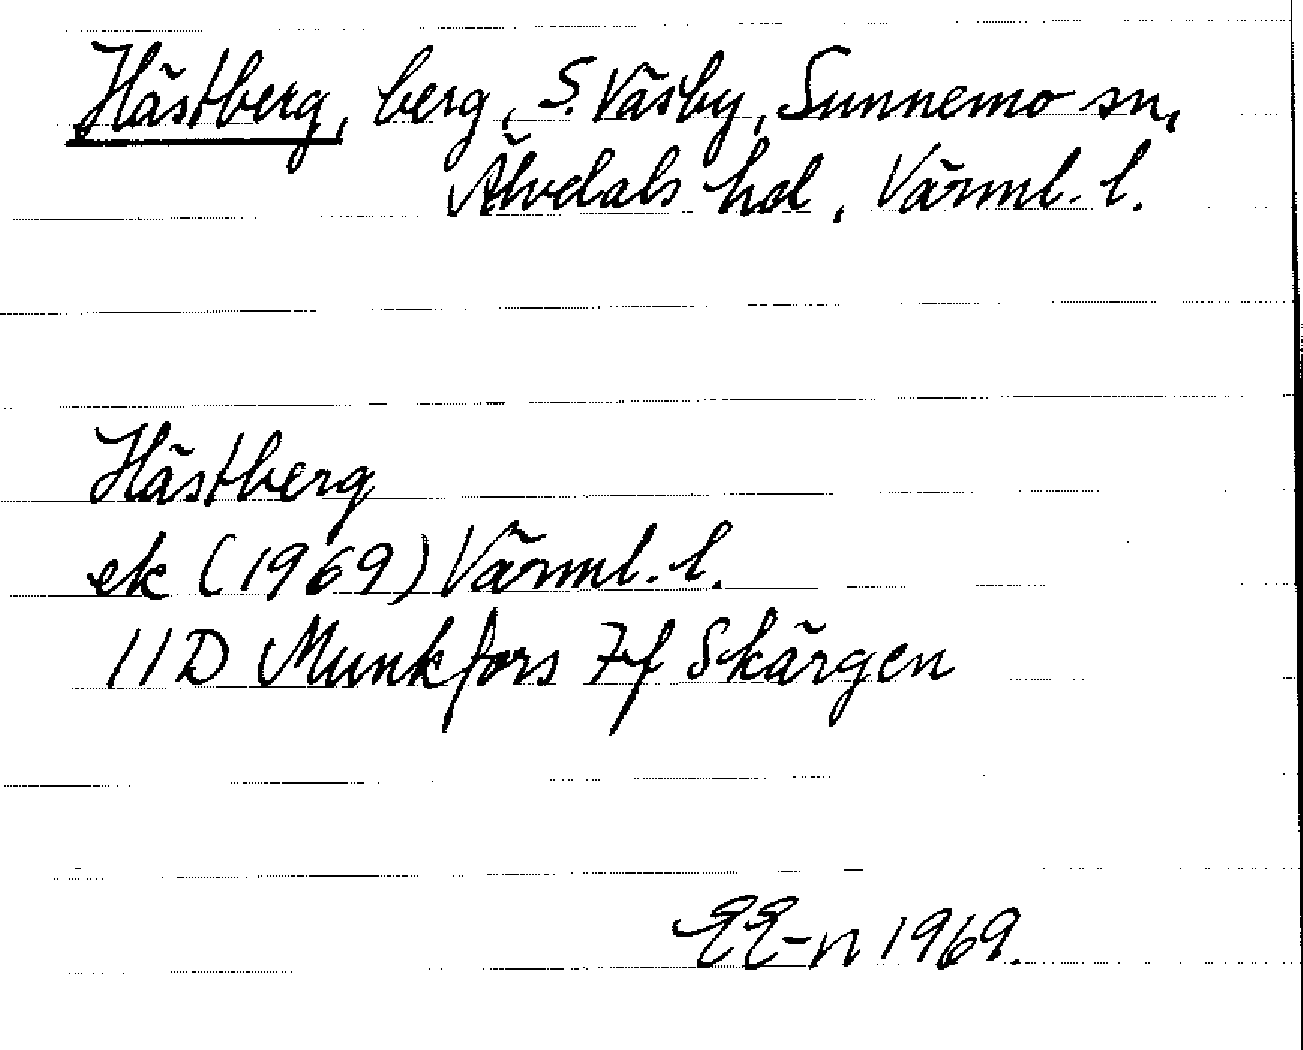 Hästberg, berg, S. Väsby, Sunnemo sn,
Älvdals hd, Värml. l.
Hästberg
ek (1969) Värml. l.
11D Munkfors 7f Skärgen
EE-n 1969.